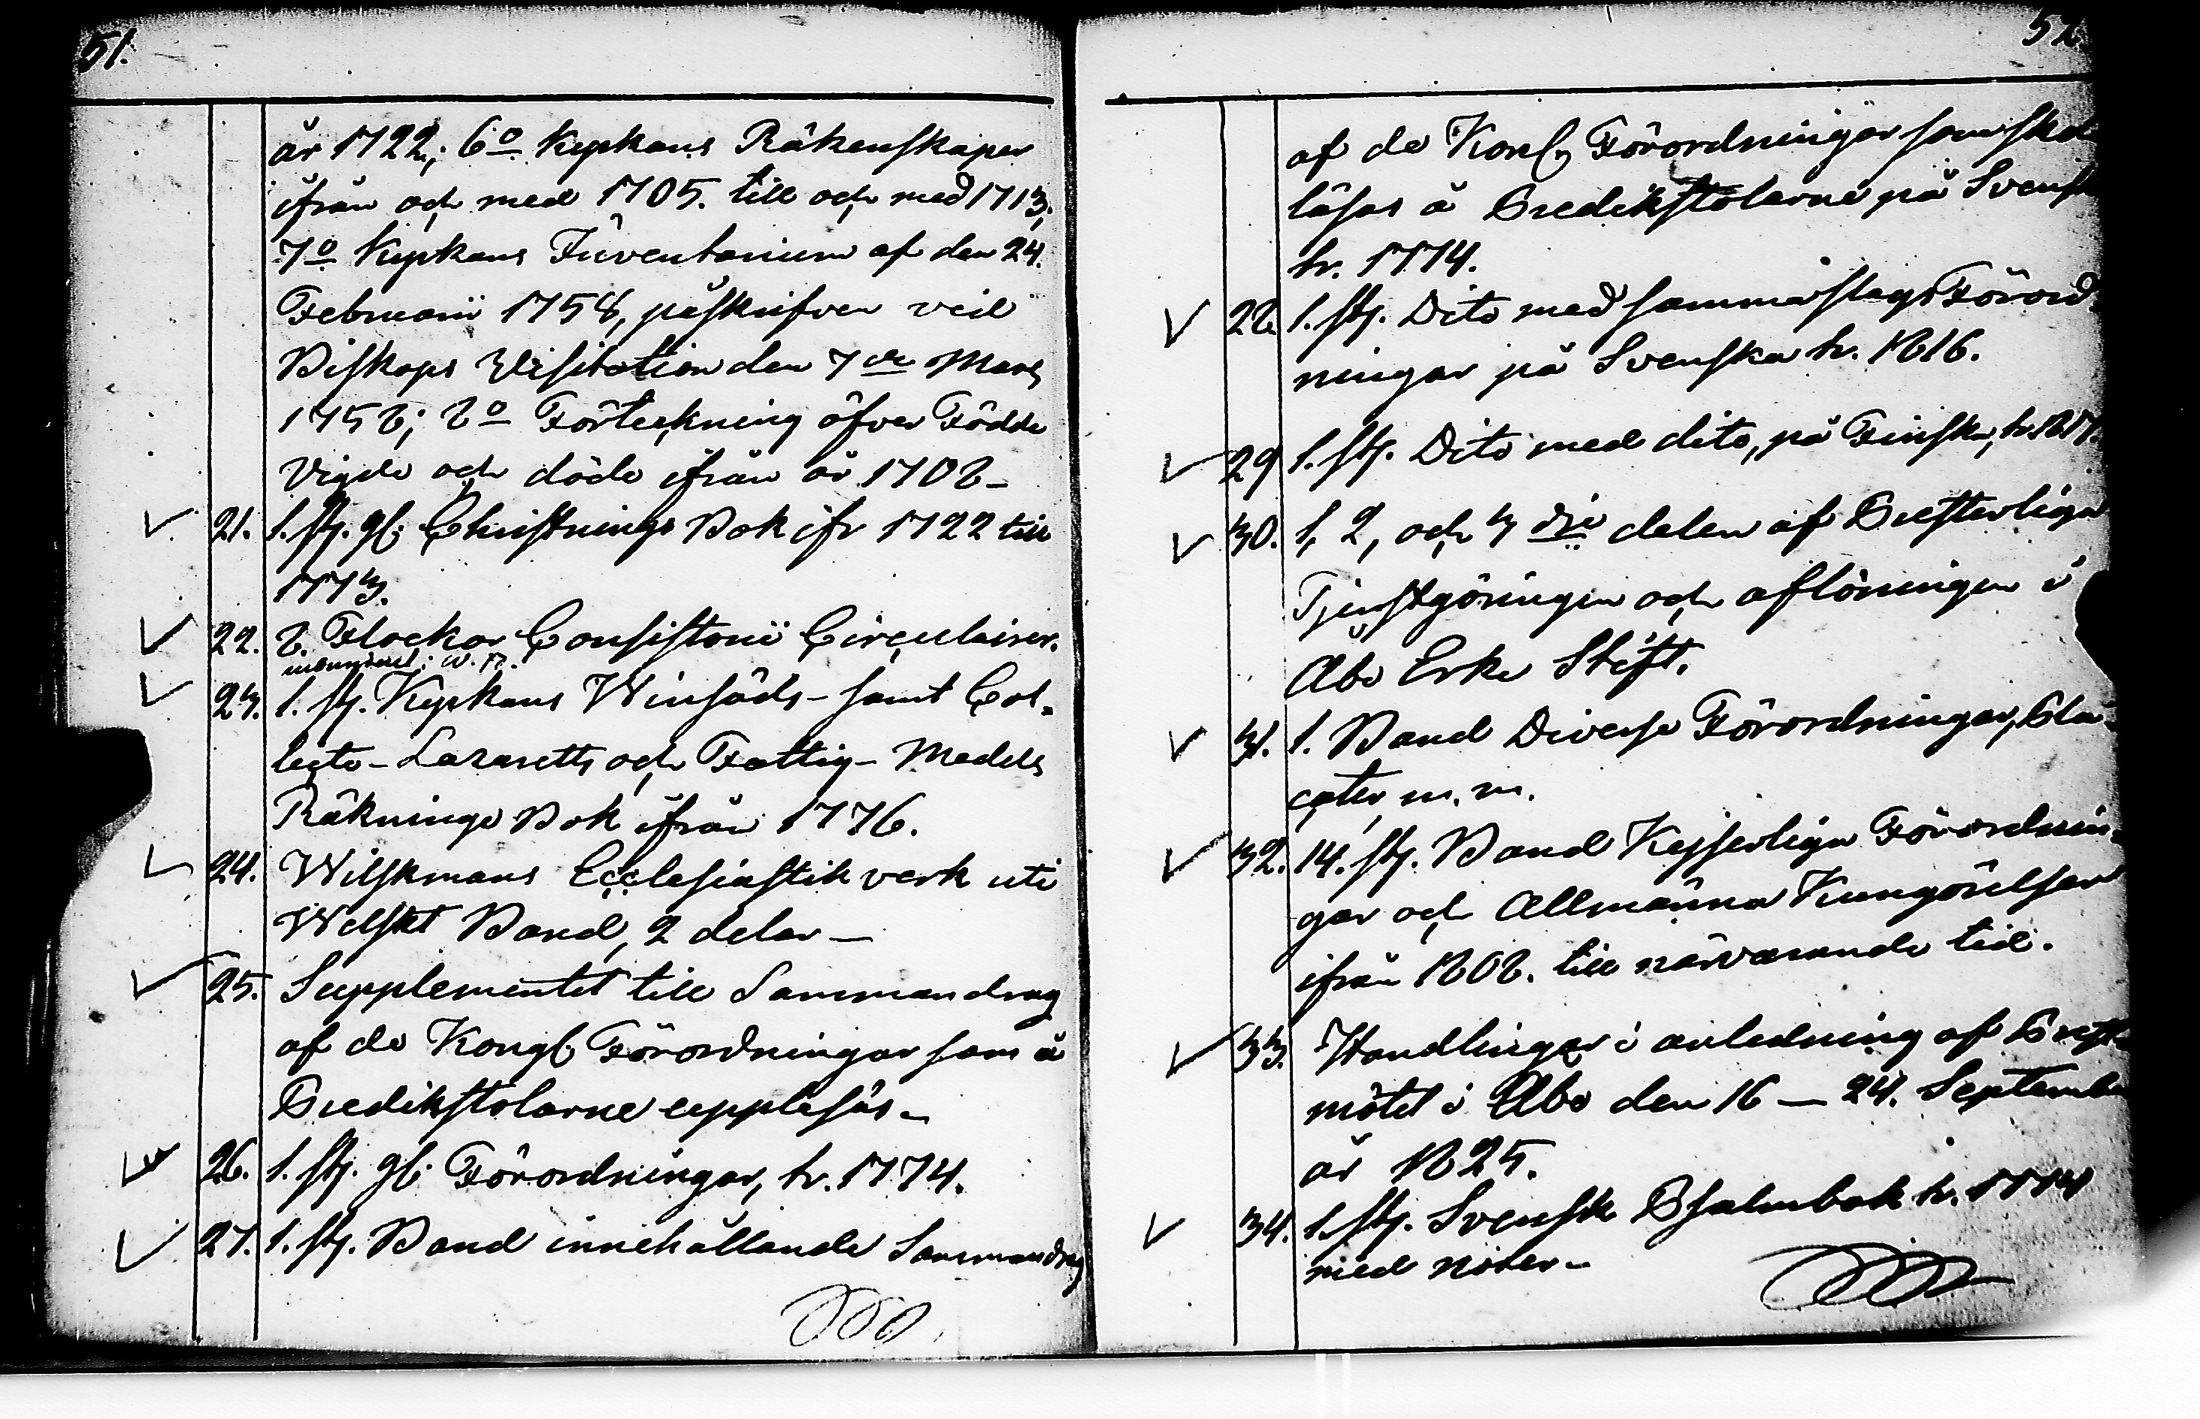 51.
år 1722; 6o Kyrkans Räkenskaper
ifrån och med 1705. till och med 1713;
7o Kyrkans Inventarium af den 24.
Februarii 1758, påskrifven vid
Biskops Visitation den 7de Mars
1758; 8o Förteckning öfver Födde
Vigde och döde ifrån år 1708-
21. 1. st. gl. Christnings Bok ifr 1722 till
1773.
22. 8. Flockar Consistorii Circulairer.
23. 1. st. Kyrkans Winsäds- samt Col-
lects- Lazaretts och Fattig- Medels
Räknings Bok ifrån 1776.
24. Wilskmans Ecclesiastik verk uti
Welskt Band, 2 delar —
25. Supplementet till Sammandrag
af de Kongl Förordningar som å
Predikstolarne uppläsas-
26. 1. st. gl. Förordningar, tr. 1774.
27. 1. st. Band innehållande Sammandrag
52.
af de Kongl Förordningar som
läsas å Predikstolarne på Svenska
tr. 1774.
28. 1. st. Dito med samma slags Förord-
ningar på Svenska tr. 1816.
29. 1. st. Dito med dito, på Finska, tr. 1817.
30. 1, 2, och 3dje delen af Presterliga
Tjenstgöringen och aflöningen i
Åbo Erke Stift.
31. 1. Band Diverse Förordningar, Pla-
cater m. m.
32. 14. st. Band Kejserliga Förordnin-
gar och Allmänna Kungörelser
ifrån 1808. till närvarande tid.
33. Handlingar i anledning af Prest-
mötet i Åbo den 16 — 24. September
år 1825.
34. 1. st. Svensk Psalmbok tr. 1774
med Noter-